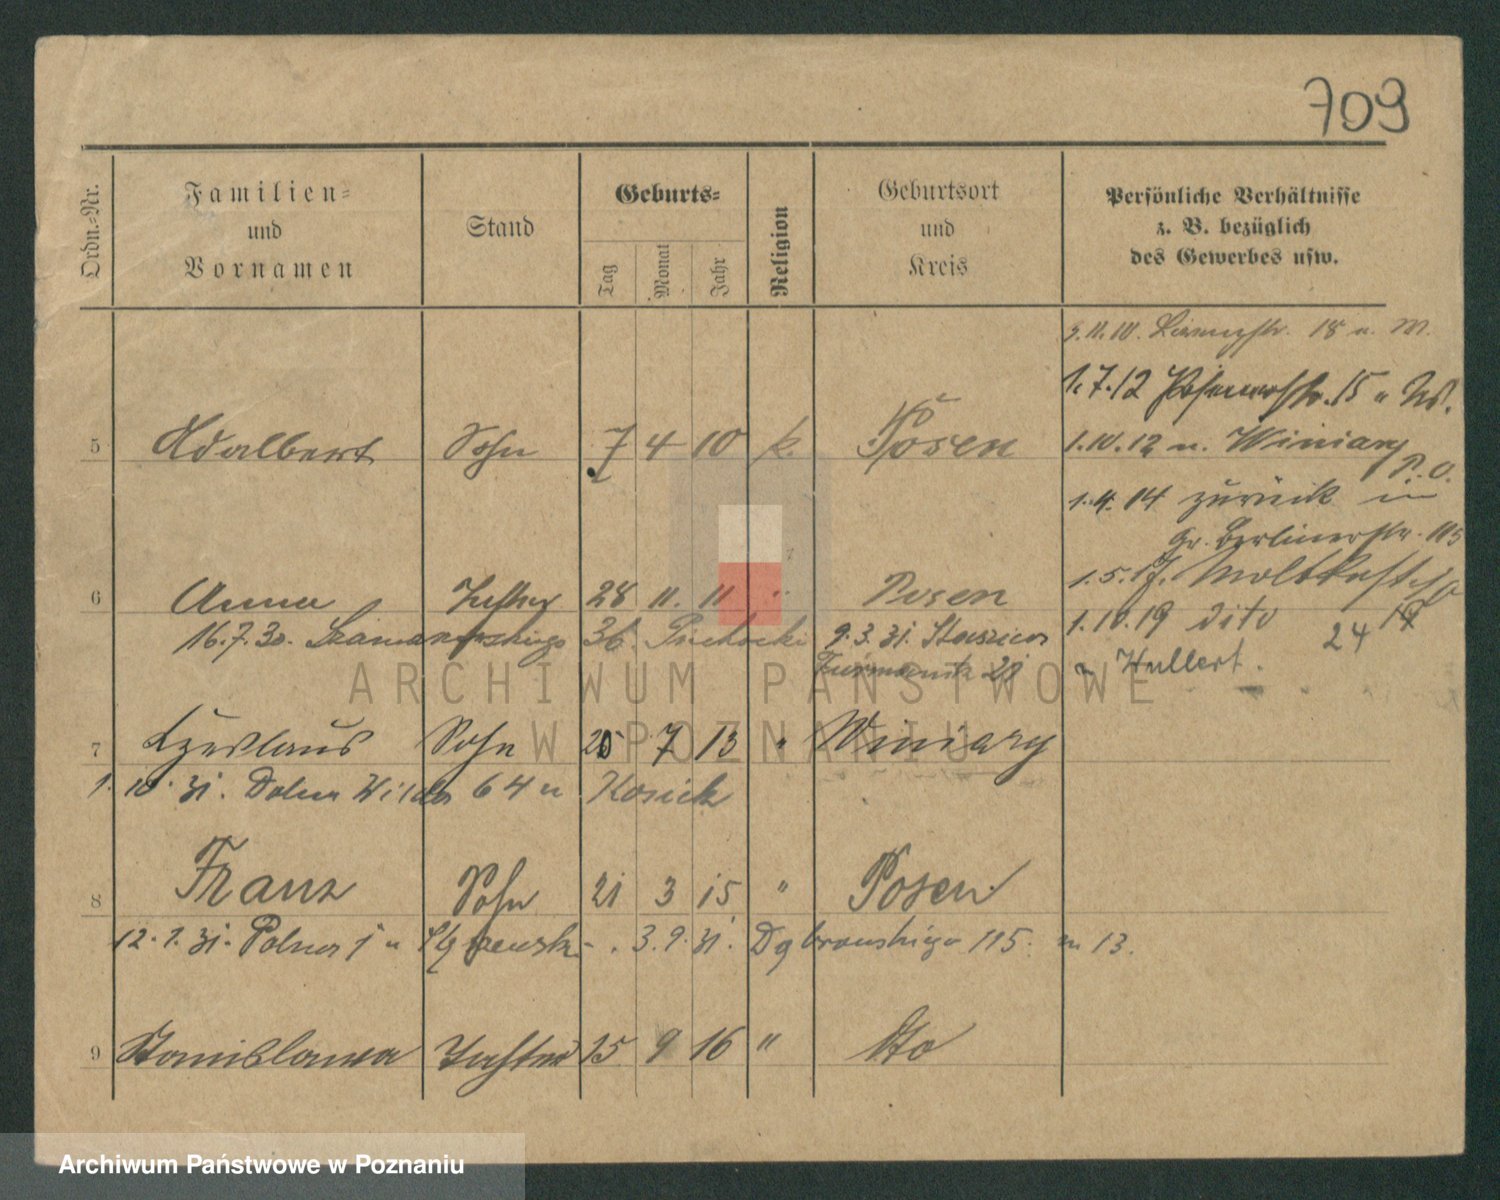 709
Ordn.-Nr.
Familien-
und
Vornamen
Stand
Geburts-
Tag
Monat
Jahr
Religion
Geburtsort
und
Kreis
Persönliche Verhältnisse
z. B. bezüglich
des Gewerbes usw.
18 u. W.
1.7.12 Posenerstr. 15 u W.
5 Adalbert Sohn 7 4 10 k. Posen
1.10.12 n. Winiary
P. O.
1.4.14 zurück in
Gr. Berlinerstr. 115
6 Anna Tochter 28 11. 11 " Posen
1.5.17. Moltkestr
16.7.30. 36. 9.3.31. Staszica
1.10.19 dito 24 19
21
7 Czeslaus Sohn 25 7 13 " Winiary
1. 10. 31. Dolna Wilda 64 u Kosick
8 Franz Sohn 21 3 15 " Posen
12.1.31. Polna 1 u 3.9.31. Dąbrowskiego 115. m 13.
9 Stanislawa Tochter 15 9 16 " dto
ARCHIWUM PAŃSTWOWE
W POZNANIU
Archiwum Państwowe w Poznaniu